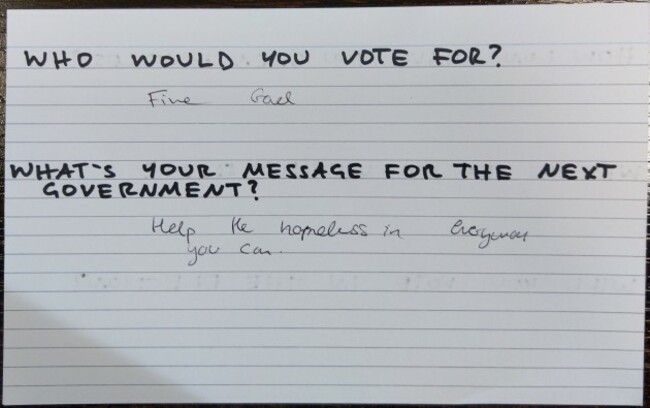 WHO WOULD YOU VOTE FOR?
Fine Gael
WHAT'S YOUR MESSAGE FOR THE NEXT
GOVERNMENT?
Help the hopneless in everyway
you can.